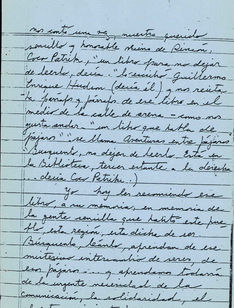 nos contó una vez nuestro querido
sencillo y honorable
Coco Patrik, "un libro para no dejar
de leerlo, decía. "Lo escribió Guillermo
Enrique Hudson (decía él) y nos recita-
ba párrafo y párrafo de ese libro en el
medio de la calle de arena - como nos
gusta andar - "un libro que habla de
pájaros" "se llama Aventuras entre pájaros
búsquenlo, no dejen de leerlo. Está en
la biblioteca, tercer estante a la derecha
... decía Coco Patrik.)
Yo hoy les recomiendo ese
libro, a su memoria, en memoria de
la gente sencilla que habitó este pue-
blo, esta región, esta dicha de ser.
Búsquenlo, léanlo, aprendan de ese
misterioso intercambio de seres, de
esos pájaros ... y aprendamos todavía
de la urgente necesidad de la
comunicación, la solidaridad, del